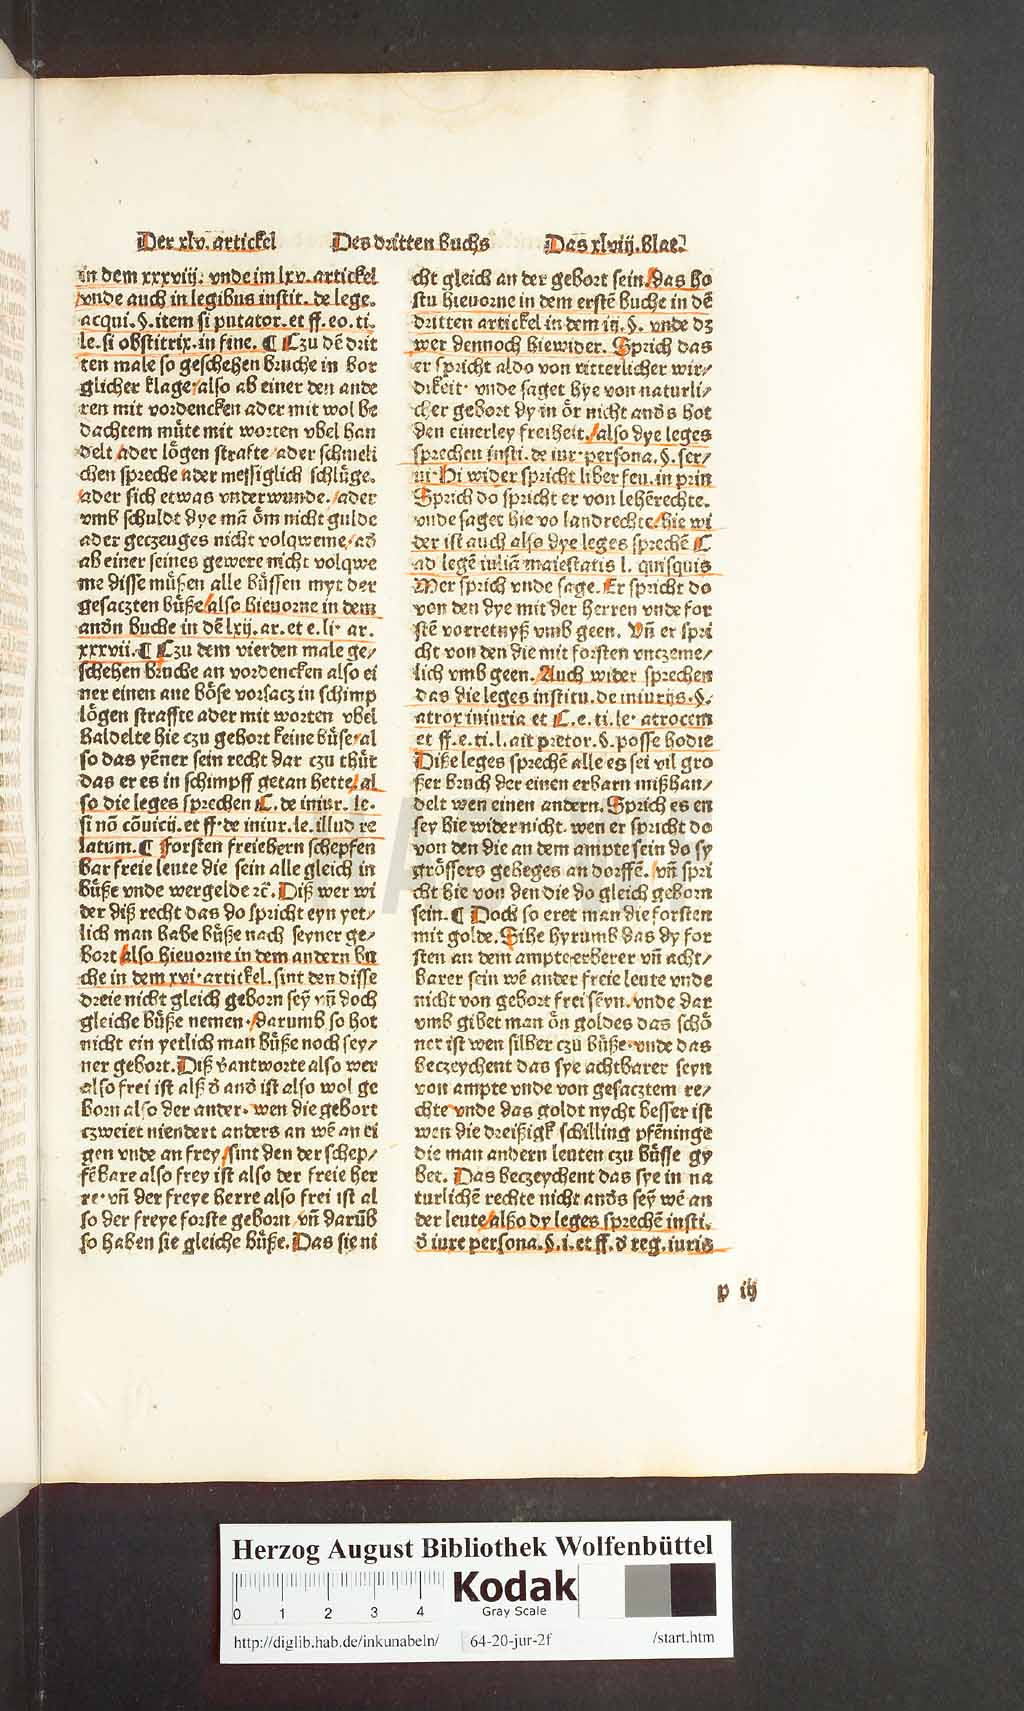 Der xlv. artickel Des dritten buchs Das xlviij. blat
in dem xxxviij. vnde im lxv. artickel
/vnde auch in legibus instit. de lege.
acqui. §. item si putator. et ff. eo. ti.
le. si obstitrix. in fine. ¶ Czu dē drit
ten male so geschehen bruche in bor
glicher klage/also ab einer den ande
ren mit vordencken ader mit wol be
dachtem mu̇te mit worten vbel han
delt/ader lȯgen strafte/ader schmeli
chen spreche/ader messiglich schlu̇ge.
/ader sich etwas vnderwunde./ader
vmb schuldt dye mā ȯm nicht gulde
ader geczeuges nicht volqweme/ad̄
ab einer seines gewere nicht volqwe
me disse mu̇ßen alle bu̇ssen myt der
gesaczten bu̇ße/also hieuorne in dem
andn̄ buche in dē lxij. ar. et e. li. ar.
xxxvii. ¶ Czu dem vierden male ge/
schehen bruche an vordencken also ei
ner einen ane bȯse vorsacz in schimp
lȯgen straffte ader mit worten vbel
haldelte hie czu gehort keine bu̇se/al
so das yēner sein recht dar czu thu̇t
das er es in schimpff getan hette/al
so die leges sprechen C. de iniur. le.
si nō cōuicij. et ff. de iniur. le. illud re
latum. ¶ Forsten freiehern schepfen
bar freie leute die sein alle gleich in
bu̇ße vnde wergelde ꝛc̄. Diß wer wi
der diß recht das do spricht eyn yet/
lich man habe bu̇ße nach seyner ge/
bort/also hieuorne in dem andern bu
che in dem xvi. artickel. sint den disse
dreie nicht gleich geborn sey̆ vn̄ doch
gleiche bu̇ße nemen./darumb so hot
nicht ein yetlich man bu̇ße noch sey/
ner gebort. Diß v̄antworte also wer
also frei ist alß d̄ and̄ ist also wol ge
born also der ander. wen die gebort
czweiet niendert anders an wē an ei
gen vnde an frey/sint den der schep/
fēbare also frey ist also der freie her
re. vn̄ der freye herre also frei ist al
so der freye forste geborn/vn̄ darūb
so haben sie gleiche bu̇ße. Das sie ni
cht gleich an der gebort sein/das ho
stu hieuorne in dem erstē buche in dē
dritten artickel in dem iij. §. vnde dz
wer dennoch hiewider. Sprich das
er spricht aldo von ritterlicher wir/
dikeit. vnde saget hye von naturli/
cher gebort dy in ȯr nicht and̄s hot
den einerley freiheit./also dye leges
sprechen insti. de iur. persona. §. ser/
ui. Hi wider spricht liber feu. in prin
Sprich do spricht er von lehērechte.
vnde saget hie vo landrechte/hie wi
der ist auch also dye leges sprechē C
ad legē iuliā maiestatis l. quisquis
Wer sprich vnde sage. Er spricht do
von den dye mit der herren vnde for
stē vorretnyß vmb geen. Vn̄ er spri
cht von den die mit forsten vnczeme/
lich vmb geen. Auch wider sprechen
das die leges institu. de iniurijs. §.
atrox iniuria et C. e. ti. le. atrocem
et ff. e. ti. l. ait pretor. §. posse hodie
Diße leges sprechē alle es sei vil gro
ßer bruch der einen erbarn mißhan/
delt wen einen andern. Sprich es en
sey hie wider nicht. wen er spricht do
von den die an dem ampte sein do sy
grȯssers geheges an dorffē. vn̄ spri
cht hie von den die do gleich geborn
sein. ¶ Doch so eret man die forsten
mit golde. Sihe hyrumb das dy for
sten an dem ampte erberer vn̄ acht/
barer sein wē ander freie leute vnde
nicht von gebort frei sēyn. vnde dar
vmb gibet man ȯn goldes das schȯ
ner ist wen silber czu bu̇ße. vnde das
beczeychent das sye achtbarer seyn
von ampte vnde von gesacztem re/
chte vnde das goldt nycht besser ist
wen die dreißigk schilling pfēninge
die man andern leuten czu bu̇sse gy
bet. Das beczeychent das sye in na
turlichē rechte nicht and̄s sey̆ wē an
der leute/alßo dy leges sprechē insti.
d̄ iure persona. §. i. et ff. d̄ reg. iuris
p iij
HAB
Herzog August Bibliothek Wolfenbüttel
0 1 2 3 4
Kodak
Gray Scale
http://diglib.hab.de/inkunabeln/ 64-20-jur-2f /start.htm